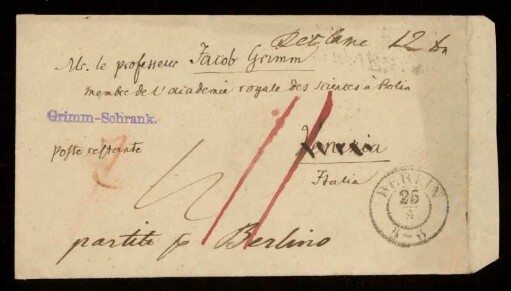 Mr. le professeur Jacob Grimm
membre de l'académie royale des sciences à Berlin
Grimm-Schrank.
poste restante
Venezia
Italia
partito p Berlino
BERLIN
25